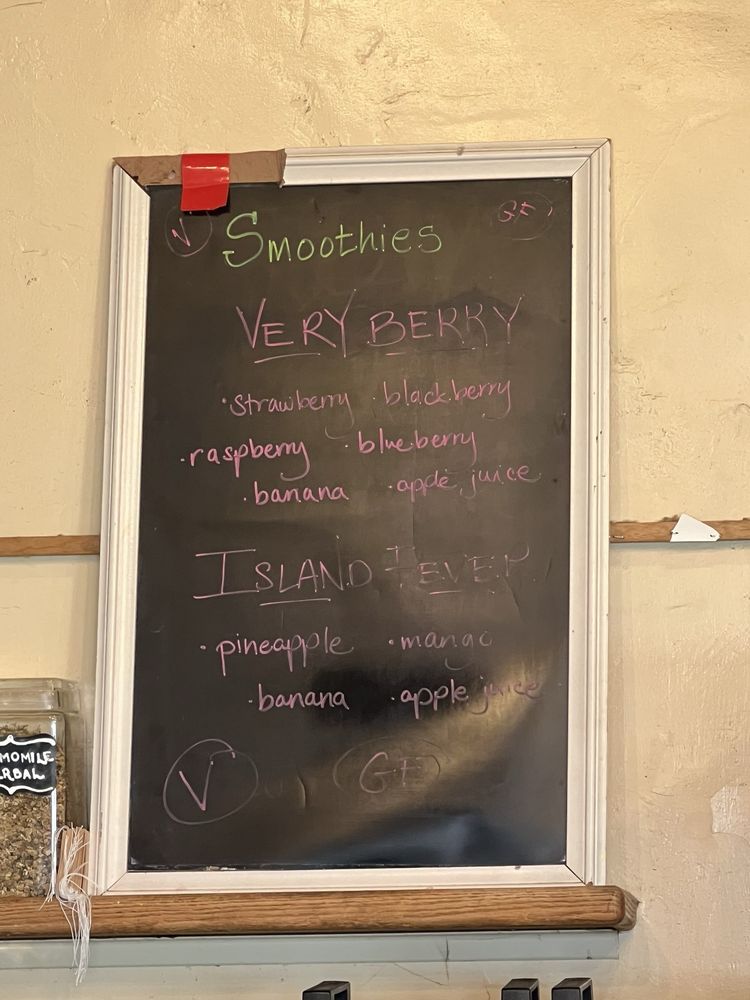 V Smoothies GF
VERY BERRY
·strawberry ·blackberry
·raspberry ·blueberry
·banana ·apple juice
ISLAND FEVER
·pineapple ·mango
·banana ·apple juice
V GF